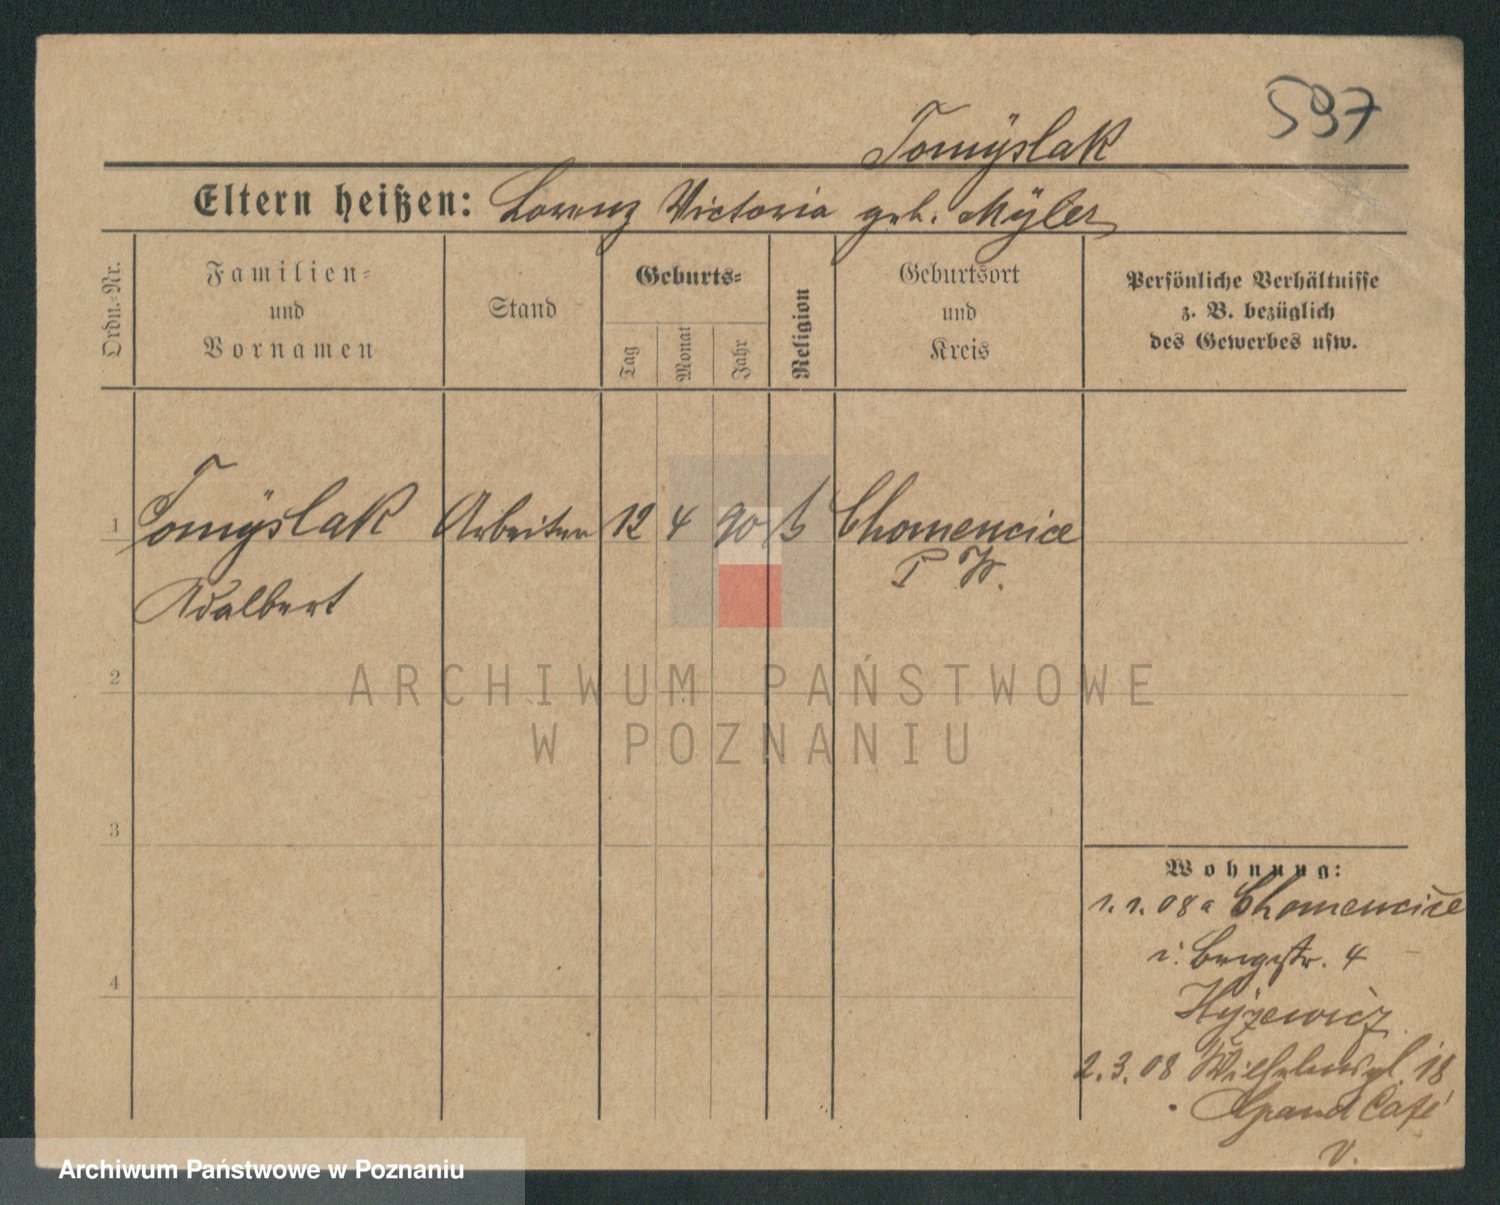 597
Tomÿslak
Eltern heißen: Lorenz Victoria geb. Mÿler
Ordn.-Nr.
Familien-
und
Vornamen
Stand
Geburts-
Tag
Monat
Jahr
Religion
Geburtsort
und
Kreis
Persönliche Verhältnisse
z. B. bezüglich
des Gewerbes usw.
1 Tomÿslak Arbeiter 12 4 90 k Chomencice
P. W.
Adalbert
2
3
4
ARCHIWUM PAŃSTWOWE
W POZNANIU
Wohnung:
1.1.08 a Chomencice
i. Bergstr. 4
Hÿzewicz
2.3.08 Wilhelmspl. 18
Grand Café
V.
Archiwum Państwowe w Poznaniu